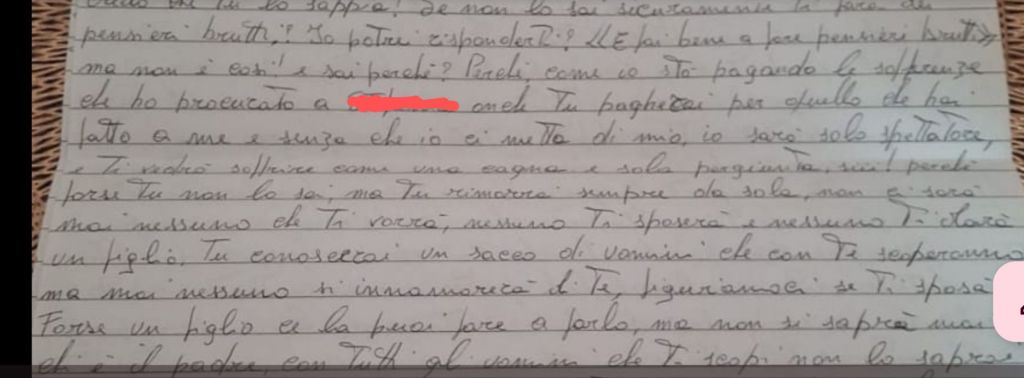 che tu lo sappia! Se non lo sai sicuramente ti farà dei
pensieri brutti!? Io potrei risponderti? «E fai bene a fare pensieri brutti»
ma non è così! e sai perché? Perché, come io sto pagando le sofferenze
che ho procurato a anche tu pagherai per quello che hai
fatto a me e senza che io ci metta di mio, io sarò solo spettatore,
e ti vedrò soffrire come una cagna e sola pergiunta, perché
forse tu non lo sai, ma tu rimarrai sempre da sola, non ci sarà
mai nessuno che ti vorrà, nessuno ti sposerà e nessuno ti darà
un figlio. Tu conoscerai un sacco di uomini che con te scoperanno
ma mai nessuno si innamorerà di te, figuriamoci se ti sposa
Forse un figlio ce la puoi fare a farlo, ma non si saprà mai
chi è il padre, con tutti gli uomini che ti scopi non lo saprai